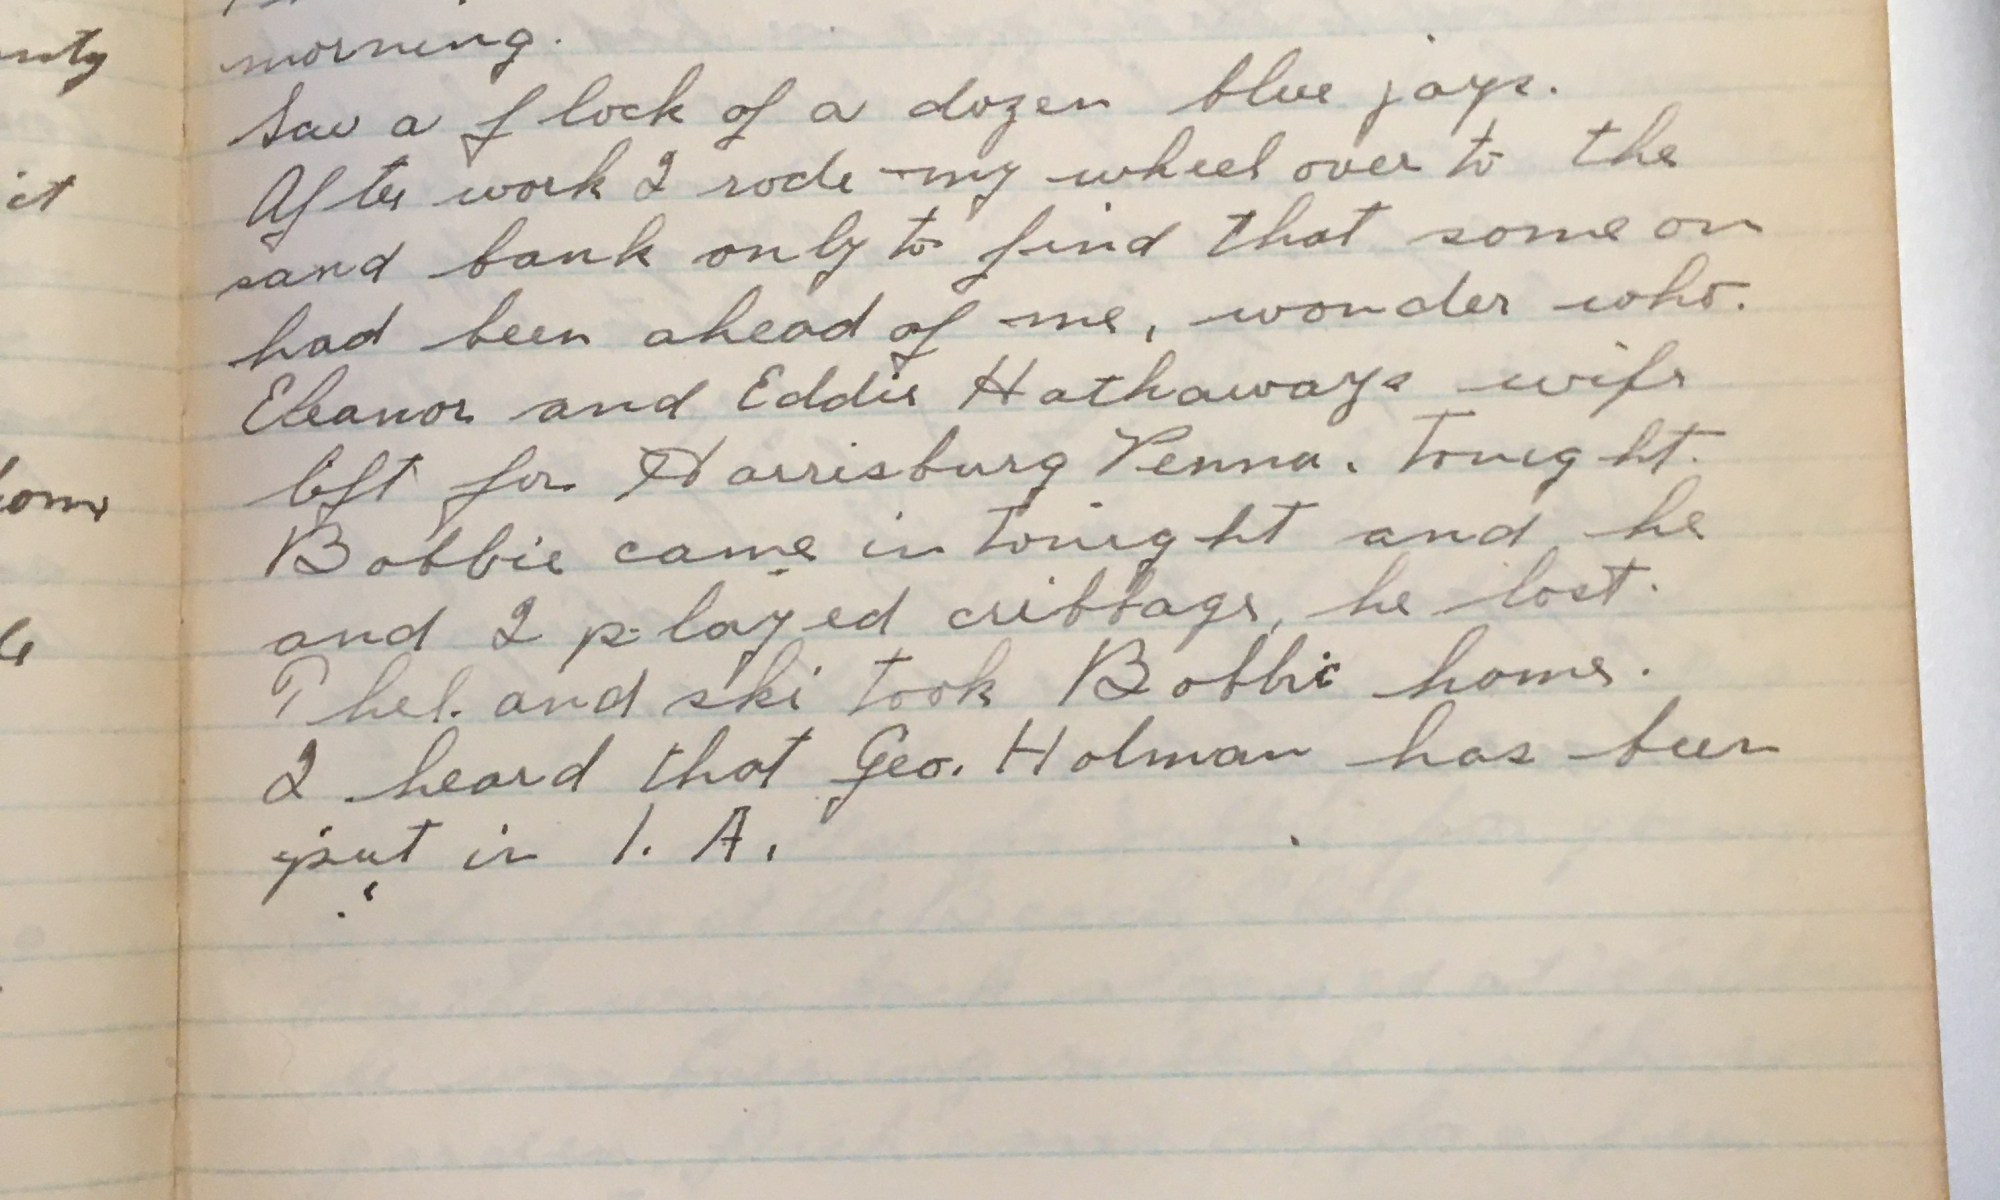 morning.
Saw a flock of a dozen blue jays.
After work I rode my wheel over to the
sand bank only to find that some on
had been ahead of me, wonder who.
Eleanor and Eddie Hathaways wife
left for Harrisburg Penna. tonight.
Bobbie came in tonight and he
and I played cribbage, he lost.
Phel. and ski took Bobbie home.
I heard that Geo. Holman has been
put in 1. A.